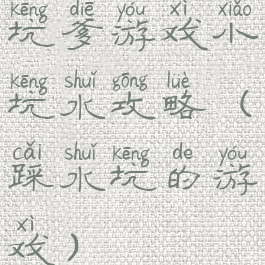 kēng diē yóu xì xiǎo
坑爹游戏小
kēng shuǐ gōng lüè
坑水攻略（
cǎi shuǐ kēng de yóu
踩水坑的游
xì
戏）